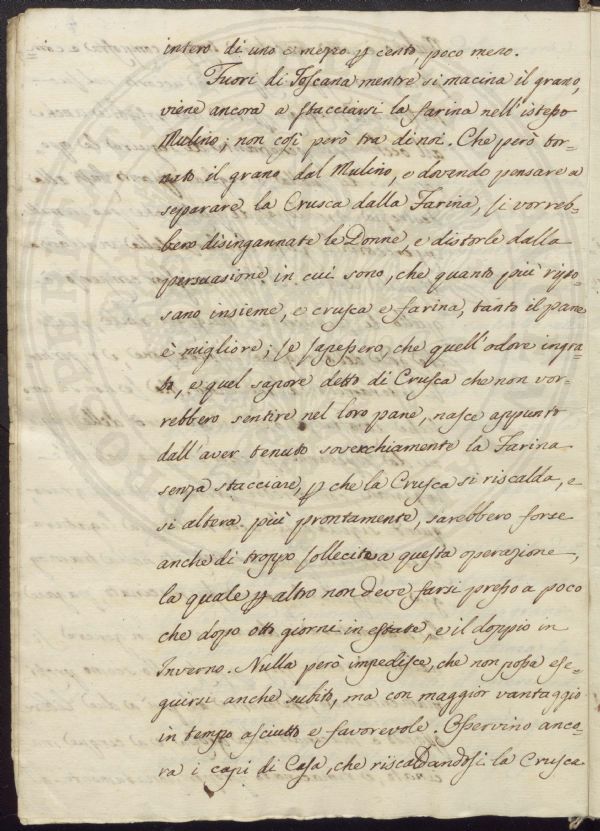 intero di uno e mezzo p cento, poco meno.
Fuori di Toscana mentre si macina il grano,
viene ancora a stacciarsi la farina nell'istesso
Mulino; non così però tra di noi. Che però tor-
nato il grano dal Mulino, e dovendo pensare a
separare la Crusca dalla Farina, si vorreb-
bero disingannate le Donne, e distorle dalla
persuasione in cui sono, che quanto più ripo-
sano insieme, e crusca e farina, tanto il pane
è migliore; se sapessero che quell'odore ingra-
to, e quel sapore detto di Crusca che non vor-
rebbero sentire nel loro pane, nasce appunto
dall'aver tenuto soverchiamente la Farina
senza stacciare, p che la Crusca si riscalda, e
si altera più prontamente, sarebbero forse
anche di troppo sollecite a questa operazione,
la quale p altro non deve farsi presso a poco
che dopo otto giorni in estate, e il doppio in
Inverno. Nulla però impedisce, che non possa ese-
guirsi anche subito, ma con maggior vantaggio
in tempo asciutto e favorevole. Osservino anco-
ra i capi di Casa, che riscaldandosi la Crusca